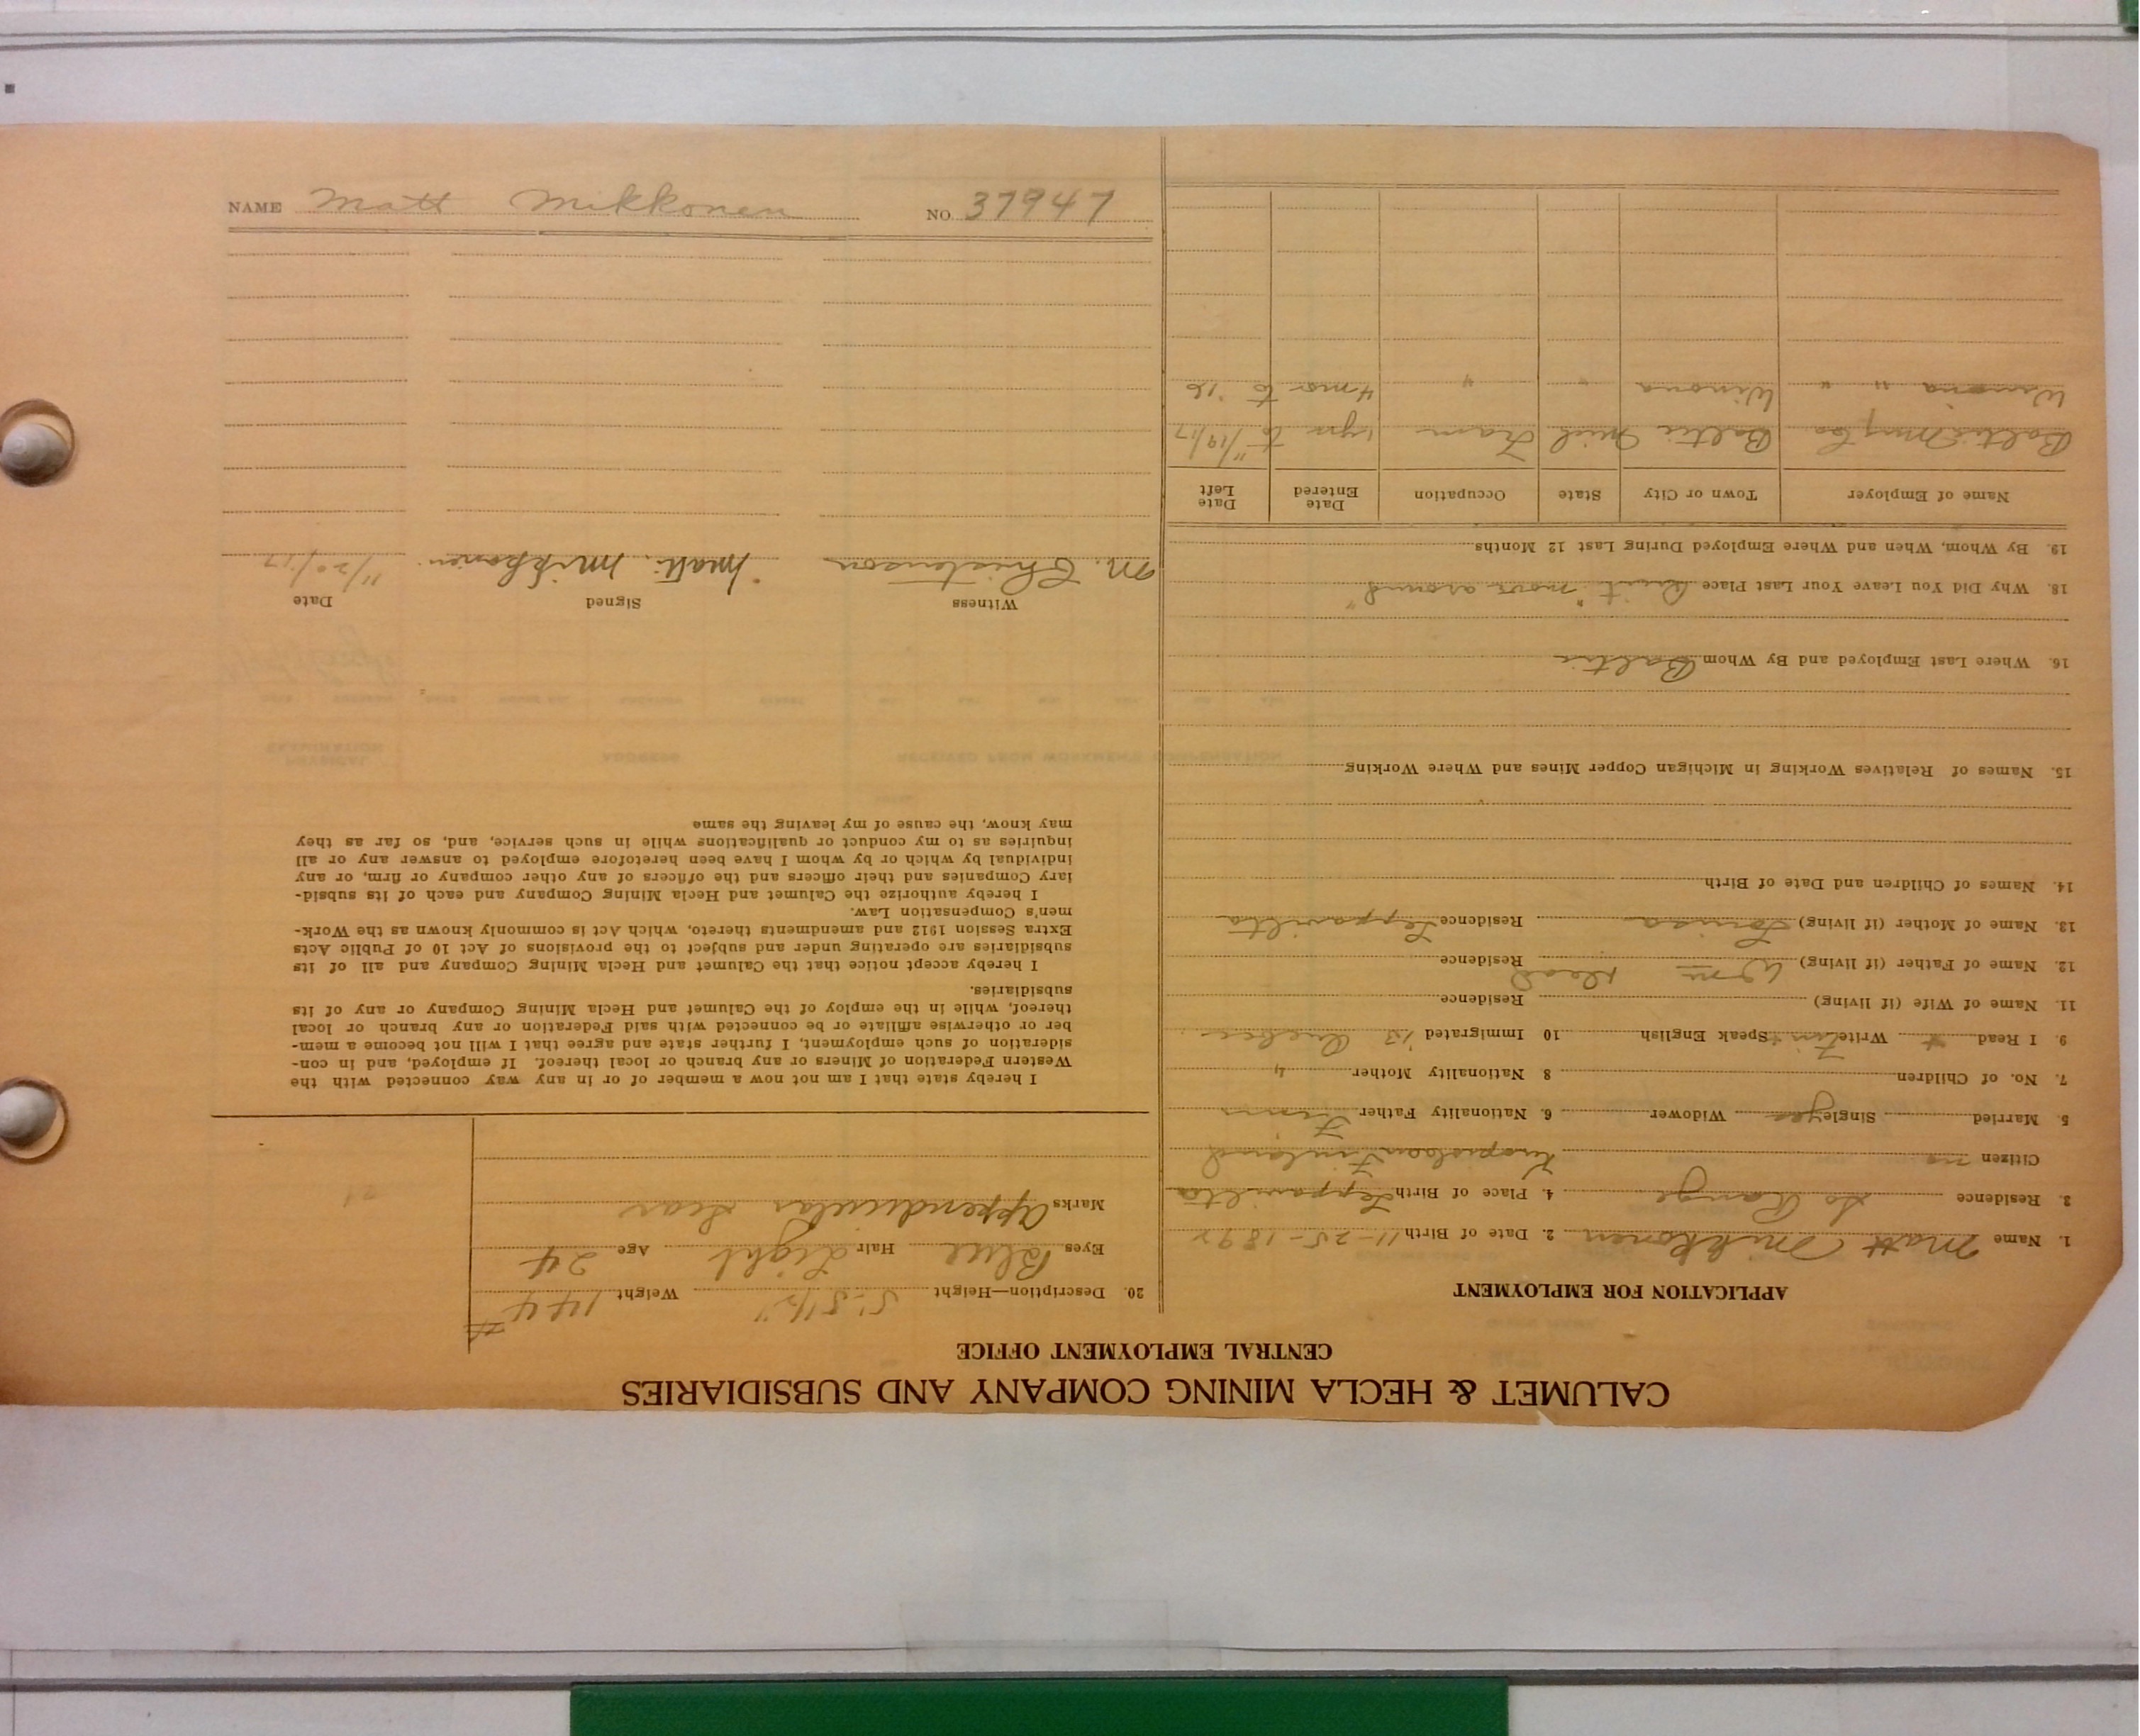 CALUMET & HECLA MINING COMPANY AND SUBSIDIARIES
CENTRAL EMPLOYMENT OFFICE
APPLICATION FOR EMPLOYMENT
1. Name Matt Mikkonen 2. Date of Birth 11-25-1892
3. Residence So Range 4. Place of Birth Leppavilta
Citizen no Kuopiolaan Finland
5. Married Single yes Widower 6. Nationality Father Finn
7. No. of Children 8 Nationality Mother "
9. I Read Write Finn Speak English 10 Immigrated '13 Quebec
11. Name of Wife (if living) Residence
12. Name of Father (if living) Wm Dead Residence
13. Name of Mother (if living) Loviisa Residence Leppavilta
14. Names of Children and Date of Birth
15. Names of Relatives Working in Michigan Copper Mines and Where Working
16. Where Last Employed and By Whom Baltic
18. Why Did You Leave Your Last Place Quit "move around"
19. By Whom, When and Where Employed During Last 12 Months
Name of Employer Town or City State Occupation Date Entered Date Left
Baltic Mng Co Baltic Mich Tram 1 yr to 11/19/17
Winona " " Winona " " 4 mo to '16
20. Description—Height 5'-5 1/2" Weight 144#
Eyes Blue Hair Light Age 24
Marks Appendicular Scar
I hereby state that I am not now a member of or in any way connected with the
Western Federation of Miners or any branch or local thereof. If employed, and in con-
sideration of such employment, I further state and agree that I will not become a mem-
ber or otherwise affiliate or be connected with said Federation or any branch or local
thereof, while in the employ of the Calumet and Hecla Mining Company or any of its
subsidiaries.
I hereby accept notice that the Calumet and Hecla Mining Company and all of its
subsidiaries are operating under and subject to the provisions of Act 10 of Public Acts
Extra Session 1912 and amendments thereto, which Act is commonly known as the Work-
men's Compensation Law.
I hereby authorize the Calumet and Hecla Mining Company and each of its subsid-
iary Companies and their officers and the officers of any other company or firm, or any
individual by which or by whom I have been heretofore employed to answer any or all
inquiries as to my conduct or qualifications while in such service, and, so far as they
may know, the cause of my leaving the same
Witness Signed Date
M. Christenson Matti Mikkonen 11/20/17
NAME Matt Mikkonen NO. 37947